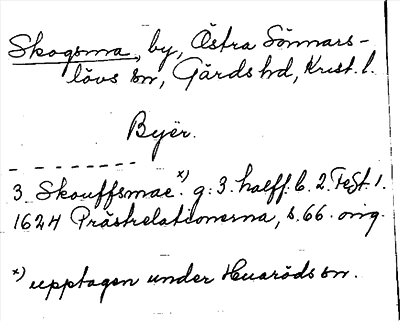 Skogsma, by, Östra Sönnars-
lövs sn, Gärds hd, Krist. l.
Byër.
3. Skouffsmae x). g. 3. halff. b. 2. Fest. 1.
1624 Prästrelationerna, s. 66. orig.
x) upptagen under Huaröds sn.